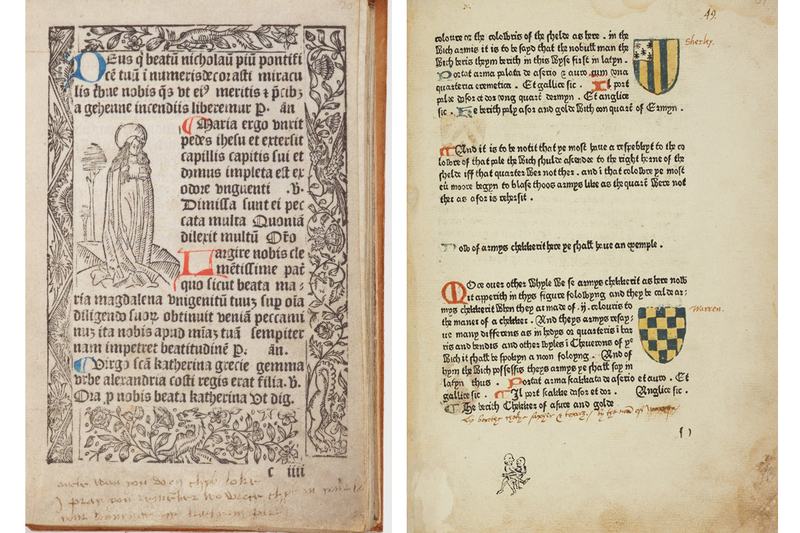 Deus q̇ beatū nicholaū piū pontifi
cē tuū ī numeris decorasti miracu
lis tribue nobis q̄s vt ei⁹ meritis ⁊ p̄cib⁹
a gehenne incendiis liberemur P. ān
Maria ergo vnxit
pedes ihesu et extersit
capillis capitis sui et
domus impleta est ex
odore vnguenti . v.
Dimissa sunt ei pec
cata multa Quoniā
dilexit multū Oro
Largire nobis cle
mētissime pat̄
quo sicut beata ma-
ria magdalena vnigenitū tuuz sup oīa
diligendo suoꝝ obtinuit veniā peccami
nuz ita nobis apud mīaz tuā sempiter
nam impetret beatitudinē P. ān.
Virgo scā katherina grecie gemma
vrbe alexandria costi regis erat filia. v.
Ora p nobis beata katherina Vt dig.
c iiii
49.
colowre or the colowris of the shelde as here . in the
wich armis it is to be sayd that the nobull man the
wich beris theym berith in this wyse first in latyn .
Portat arma palata de asorio ⁊ auro cum vna
quarteria ermetica . Et gallice sic . Il port
pale dasor et dor vng quart dermyn . Et anglice
sic . He berith paly asor and golde with oon quart of Ermyn .
Sherley.
And it is to be notit that ye most haue a respekkyt to the co
lowre of that pale the wich shulde ascende to the right horne of the
shelde iff that quarter wer not ther . and i that colowre ye most
eū moore begyn to blase thoos armys like as the quart were not
ther as afor is rehersit .
Now of armys chekkerit here ye shall haue an exemple .
Moreouer other whyle we se armys chekkerit as here now
it apperith in thys figure folowyng . and they be calde ar-
mys chekkerit when they ar made of .ij. colouris to
the maner of a chekker . And theys armys resay-
ue many differens as in bordys or quarteris i bar
ris and bendis and other wyles i Cheueronys of ye
wich it shall be spokyn a noon folowyng . And of
hym the wich possessis theys armys ye shall say in
latyn thus . Portat arma scakkata de asorio et auro . Et
gallice sic . Il port scakke dasor et dor . Anglice sic .
He berith Chekker of asure and golde
Warren.